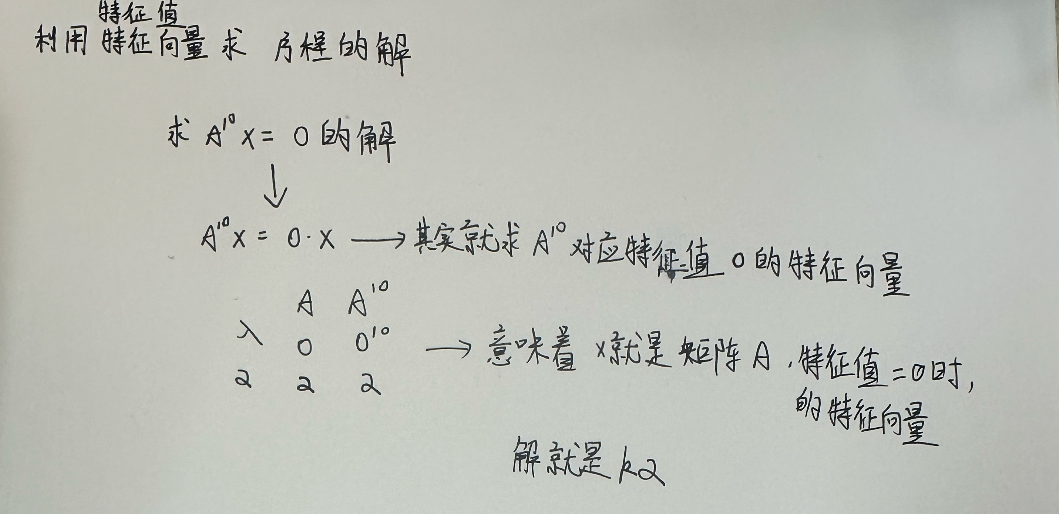 特征值
利用特征向量求 方程的解
求 A¹⁰x = 0 的解
↓
A¹⁰x = 0·x → 其实就求 A¹⁰ 对应特征值 0 的特征向量
A A¹⁰
λ 0 0¹⁰ → 意味着 x就是矩阵A,特征值=0时,
α α α 的特征向量
解就是 kα